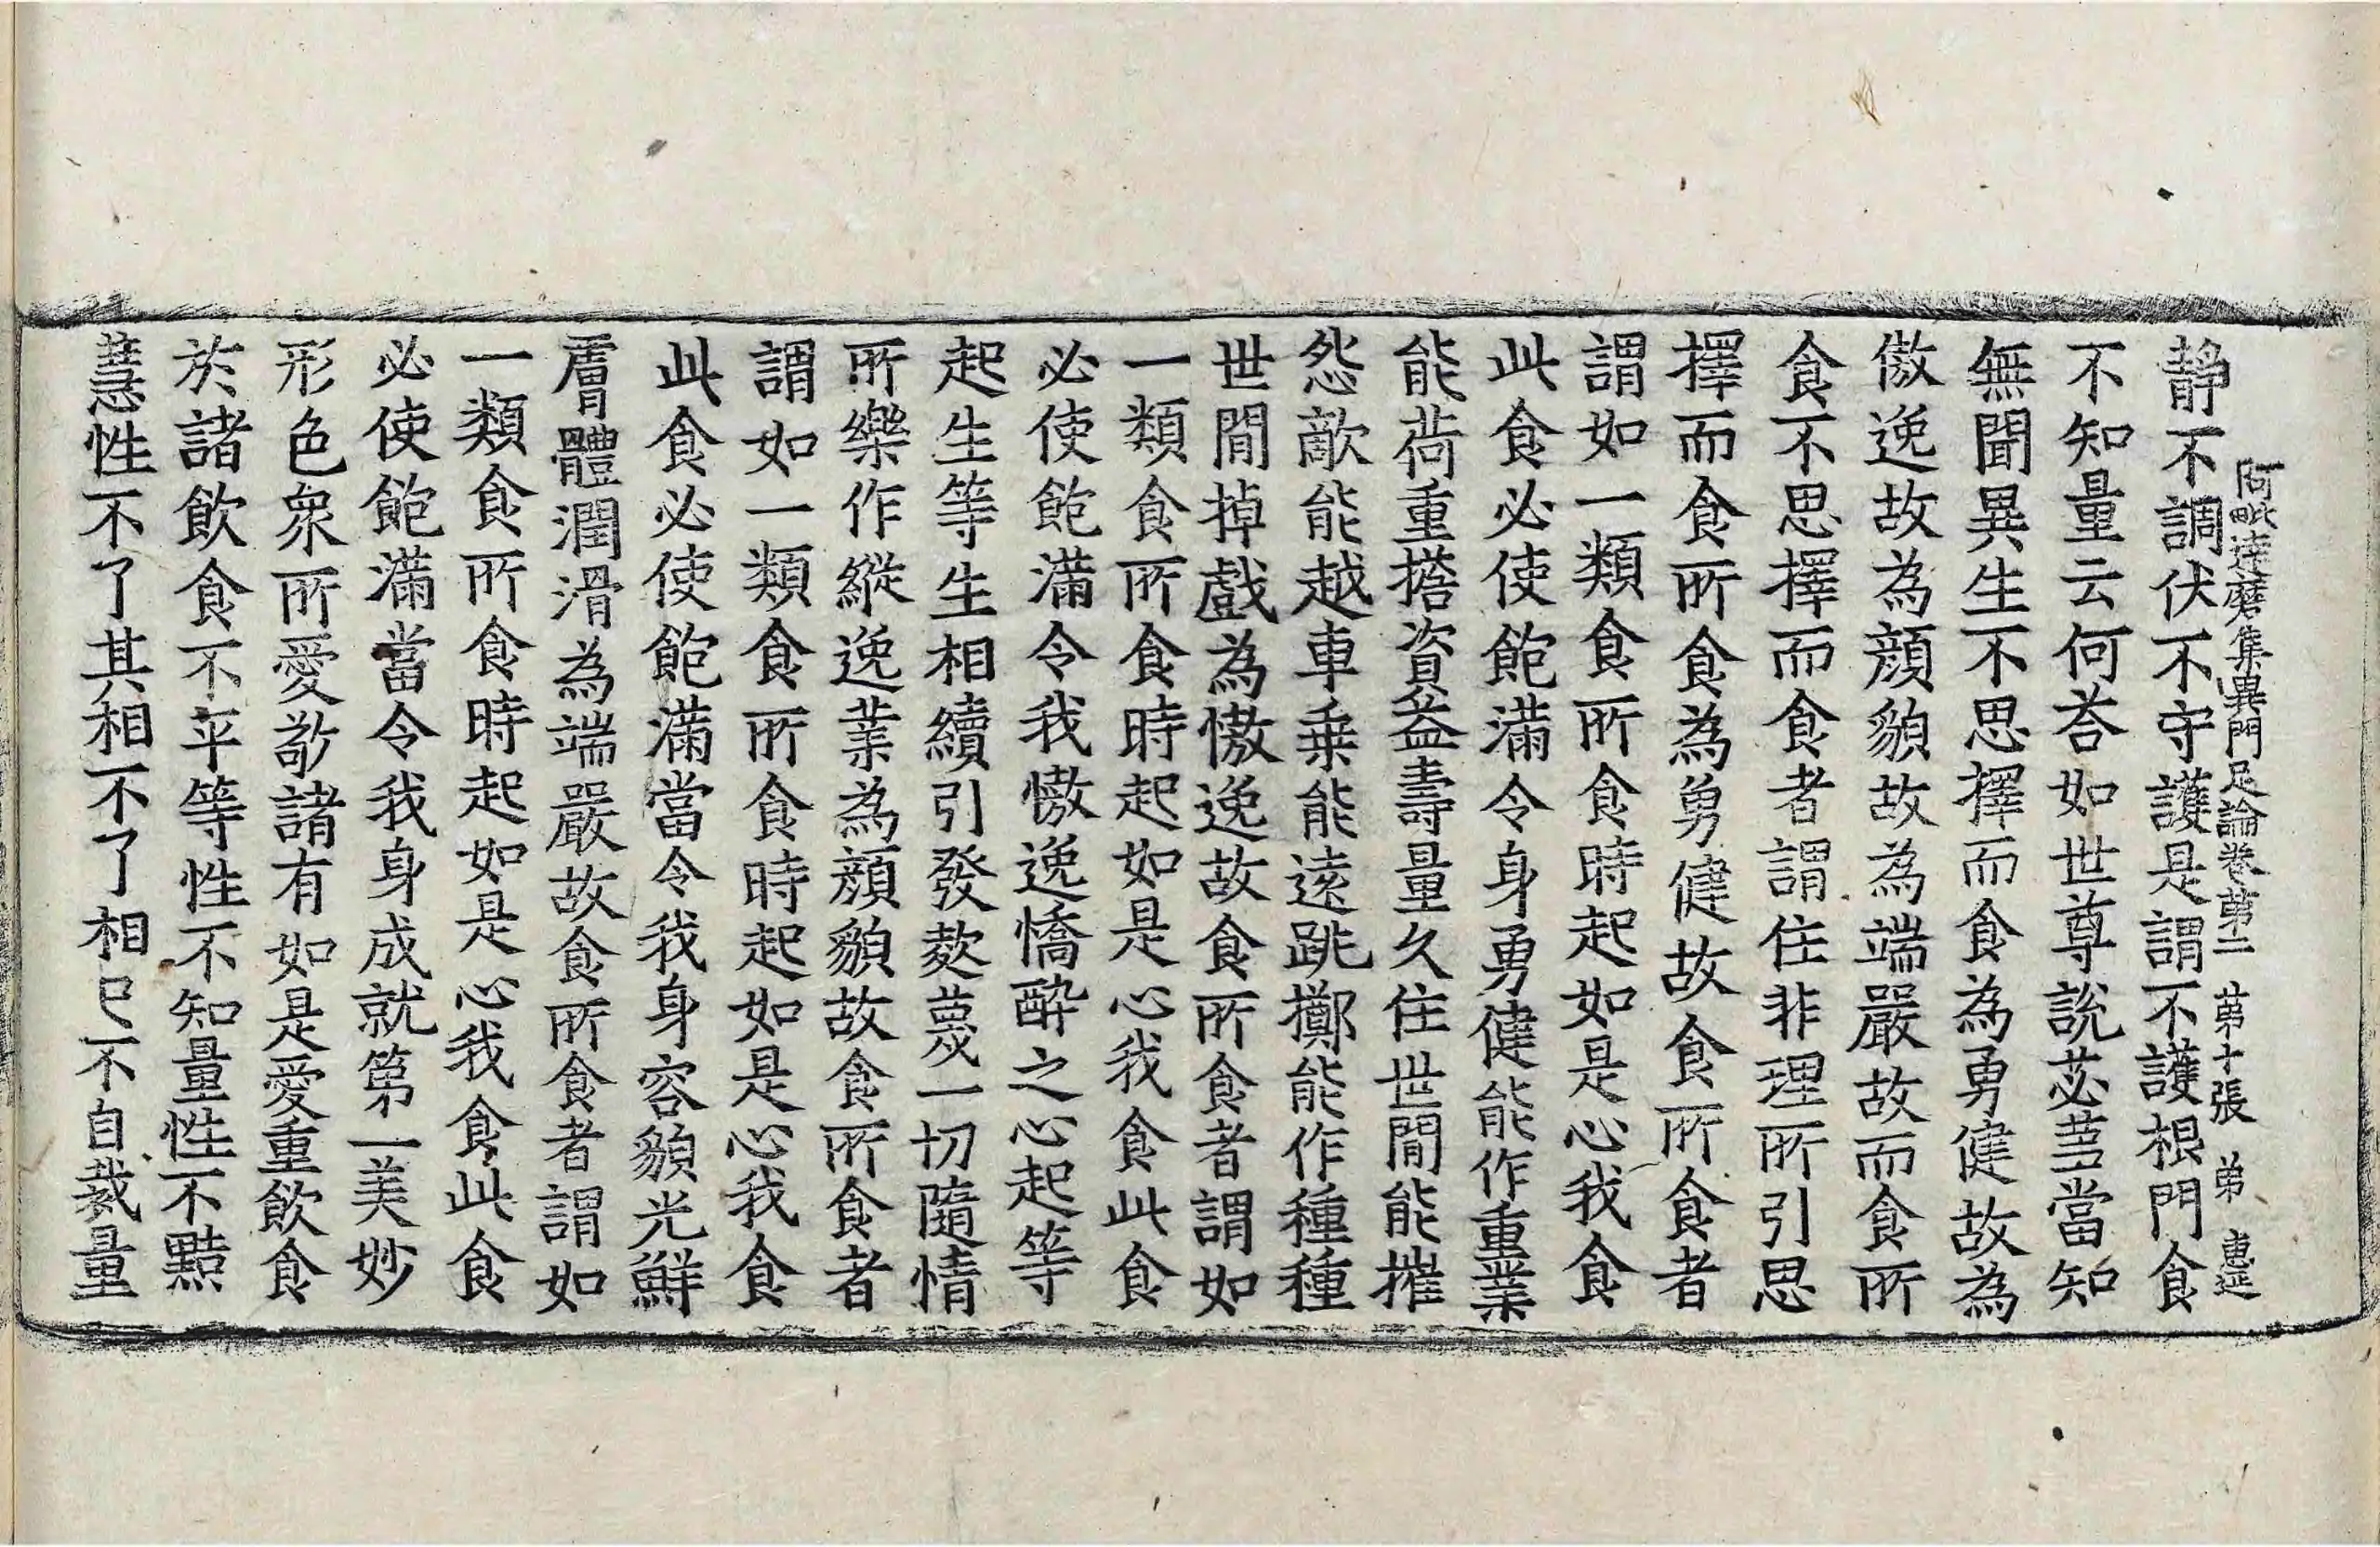 阿毗達磨集異門足論卷第二　第十張　弟　惠延
靜不調伏不守護是謂不護根門食
不知量云何荅如世尊說苾芻當知
無聞異生不思擇而食為勇健故為
傲逸故為顔貌故為端嚴故而食所
食不思擇而食者謂住非理所引思
擇而食所食為勇健故食所食者
謂如一類食所食時起如是心我食
此食必使飽滿令身勇健能作重業
能荷重擔資益壽量久住世間能摧
怨敵能越車乗能遠跳擲能作種種
世間掉戲為慠逸故食所食者謂如
一類食所食時起如是心我食此食
必使飽滿令我慠逸憍醉之心起等
起生等生相續引發欻蔑一切隨情
所樂作縱逸業為顔貌故食所食者
謂如一類食所食時起如是心我食
此食必使飽滿當令我身容貌光鮮
膚體潤滑為端嚴故食所食者謂如
一類食所食時起如是心我食此食
必使飽滿當令我身成就第一美妙
形色衆所愛敬諸有如是愛重飲食
於諸飲食不平等性不知量性不黠
慧性不了其相不了相已不自裁量